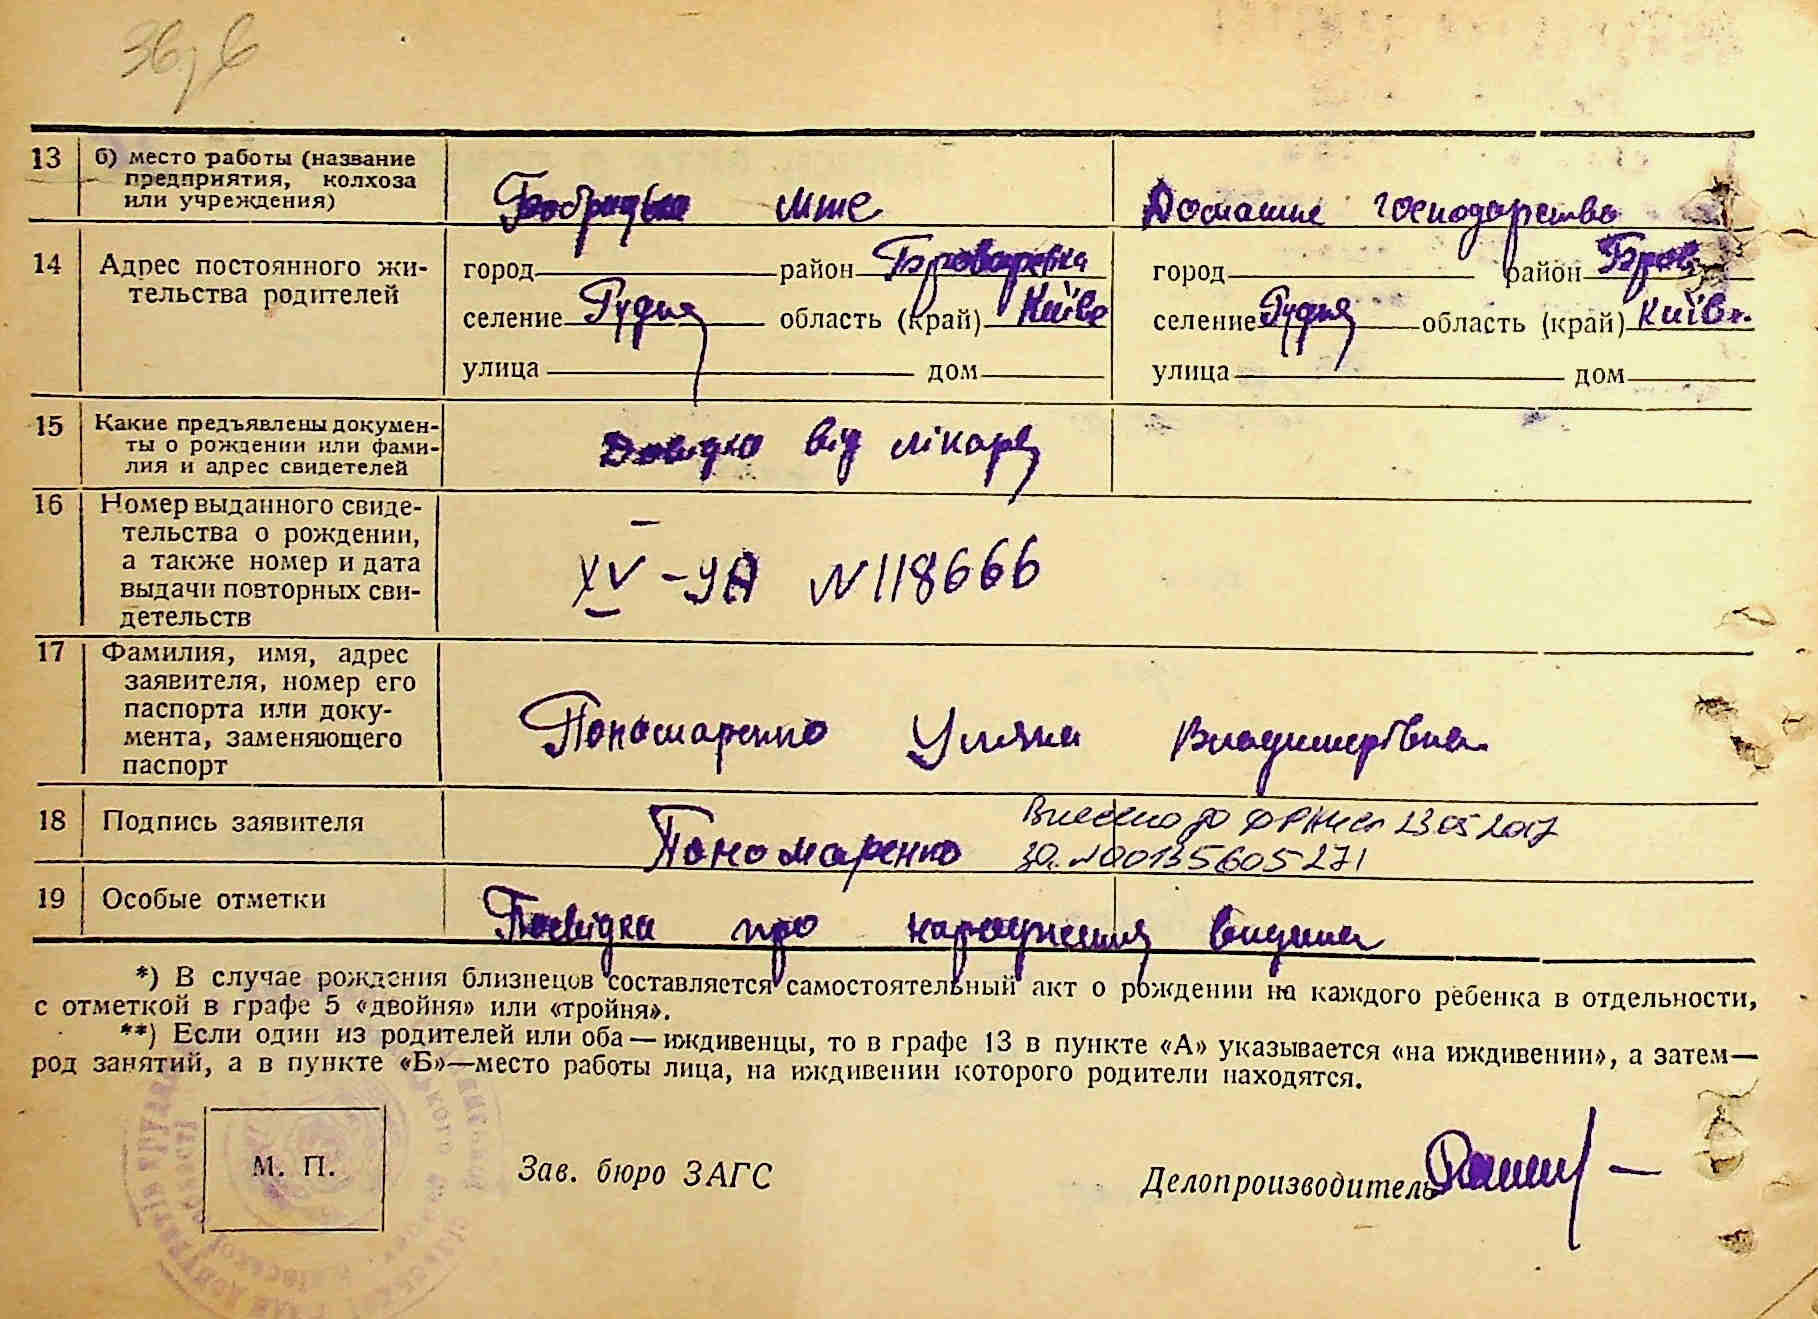 36, б
13 б) место работы (название
предприятия, колхоза
или учреждения)
мте Домашнє господарство
14 Адрес постоянного жи-
тельства родителей
город район Броварівка город район Бров.
селение Рудня область (край) Київс селение Рудня область (край) Київс.
улица дом улица дом
15 Какие предъявлены докумен-
ты о рождении или фами-
лия и адрес свидетелей
Довідка від лікаря
16 Номер выданного свиде-
тельства о рождении,
а также номер и дата
выдачи повторных сви-
детельств
XV-УА N118666
17 Фамилия, имя, адрес
заявителя, номер его
паспорта или доку-
мента, заменяющего
паспорт
Пономаренко Уляна Владимерівна
18 Подпись заявителя
Пономаренко
Внесено до ФРНСГ 23 05 2017
за №00135605271
19 Особые отметки
Посвідка про народження видана
*) В случае рождения близнецов составляется самостоятельный акт о рождении на каждого ребенка в отдельности,
с отметкой в графе 5 «двойня» или «тройня».
**) Если один из родителей или оба—иждивенцы, то в графе 13 в пункте «А» указывается «на иждивении», а затем—
род занятий, а в пункте «Б»—место работы лица, на иждивении которого родители находятся.
М. П.
Зав. бюро ЗАГС
Делопроизводитель